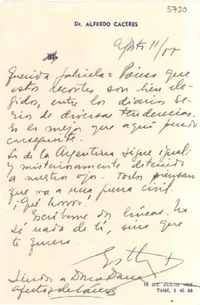 5720
Dr. ALFREDO CACERES
Agosto 11/55
Querida Gabriela = Pienso que
estos recortes son bien ele-
gidos, entre los diarios se-
rios de diversas tendencias.
Es lo mejor que aquí puedo
conseguirte.
Lo de la Argentina sigue igual.
y misteriosamente detenido
a nuestro ojo. Todos piensan
que va a una guerra civil.
¡Qué horror!
Escríbeme dos líneas. No
sé nada de ti, sino que
te quiero.
Esther
DE JULIO
Teléf.
Saludos a Doris Dana